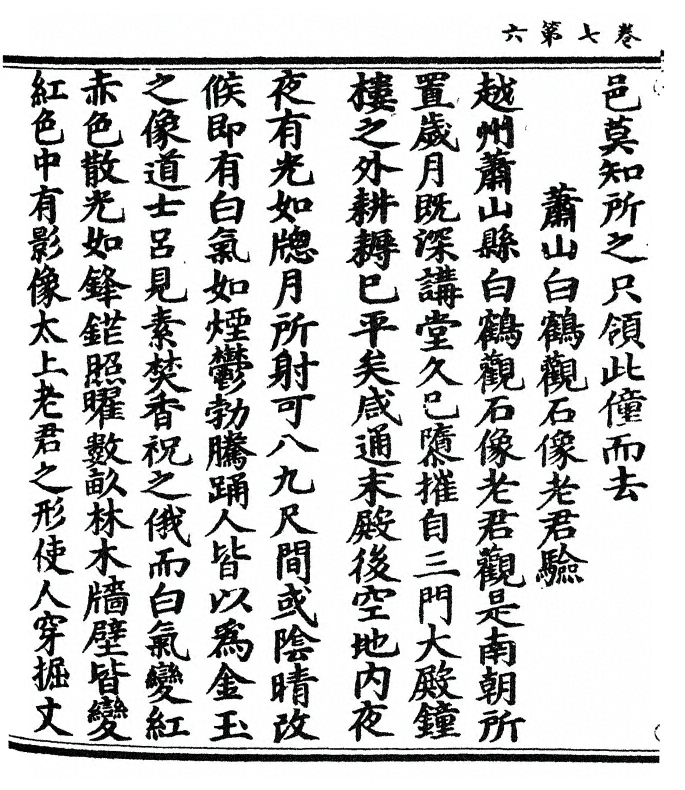 卷七第六
邑莫知所之只領此僮而去
蕭山白鶴觀石像老君驗
越州蕭山縣白鶴觀石像老君觀是南朝所
置歲月既深講堂久已隳摧自三門大殿鐘
樓之外耕耨已平矣咸通末殿後空地内夜
夜有光如牎月所射可八九尺間或陰晴改
候即有白氣如煙鬱勃騰踊人皆以爲金玉
之像道士吕見素焚香祝之俄而白氣變紅
赤色散光如鋒鋩照曜數畝林木牆壁皆變
紅色中有影像太上老君之形使人穿掘丈